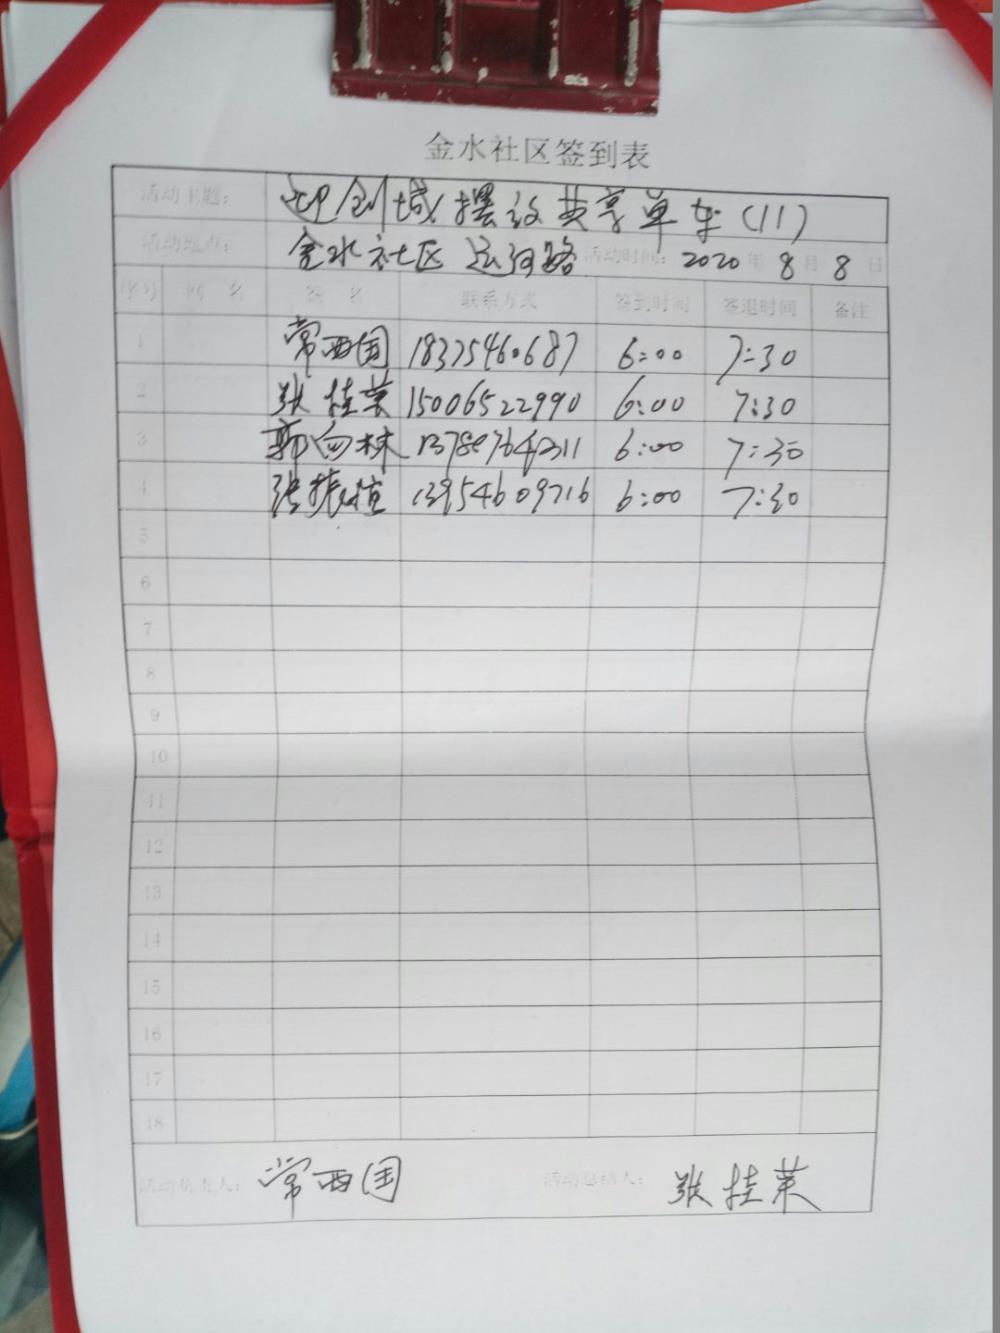 金水社区签到表
活动主题: 迎创城摆放共享单车(11)
活动地点: 金水社区 运河路 活动时间: 2020年8月8日
序号 网名 签名 联系方式 签到时间 签退时间 备注
1 常西国 18375460687 6:00 7:30
2 张桂荣 15006522990 6:00 7:30
3 郭向林 6:00 7:30
4 张振恒 13954609716 6:00 7:30
5
6
7
8
9
10
11
12
13
14
15
16
17
18
活动负责人: 常西国 活动总结人: 张桂荣